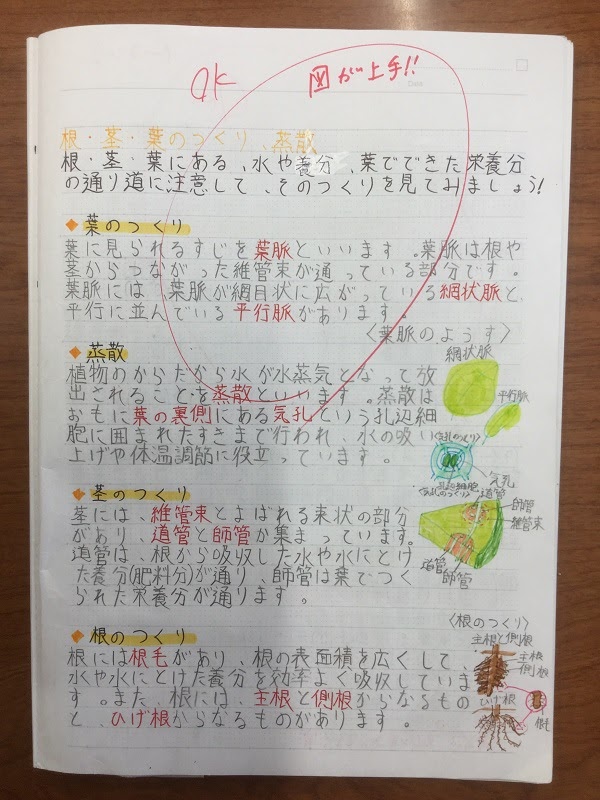 OK
図が上手!!
根・茎・葉のつくり、蒸散
根・茎・葉にある、水や養分、葉でできた栄養分
の通り道に注意して、そのつくりを見てみましょう!
◆葉のつくり
葉に見られるすじを葉脈といいます。葉脈は根や
茎からつながった維管束が通っている部分です。
葉脈には、葉脈が網目状に広がっている網状脈と、
平行に並んでいる平行脈があります。
〈葉脈のようす〉
網状脈
平行脈
◆蒸散
植物のからだから水が水蒸気となって放
出されることを蒸散といいます。蒸散は
おもに葉の裏側にある気孔という孔辺細
胞に囲まれたすきまで行われ、水の吸い
上げや体温調節に役立っています。
気孔
孔辺細胞
◆茎のつくり
茎には、維管束とよばれる束状の部分
があり、道管と師管が集まっています。
道管は、根から吸収した水や水にとけ
た養分(肥料分)が通り、師管は葉でつく
られた栄養分が通ります。
道管
師管
維管束
道管
師管
◆根のつくり
根には根毛があり、根の表面積を広くして、
水や水にとけた養分を効率よく吸収していま
す。また、根には、主根と側根からなるもの
と、ひげ根からなるものがあります。
〈根のつくり〉
主根と側根
主根
側根
ひげ根